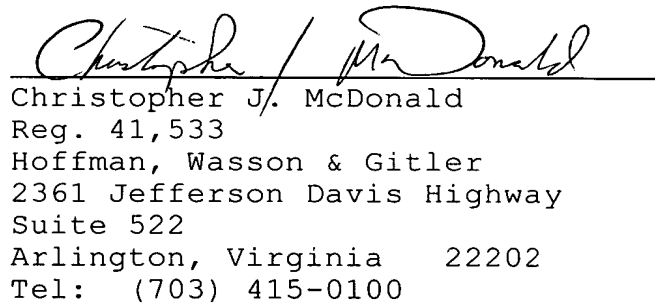 Christopher J. McDonald
Christopher J. McDonald
Reg. 41,533
Hoffman, Wasson & Gitler
2361 Jefferson Davis Highway
Suite 522
Arlington, Virginia 22202
Tel: (703) 415-0100